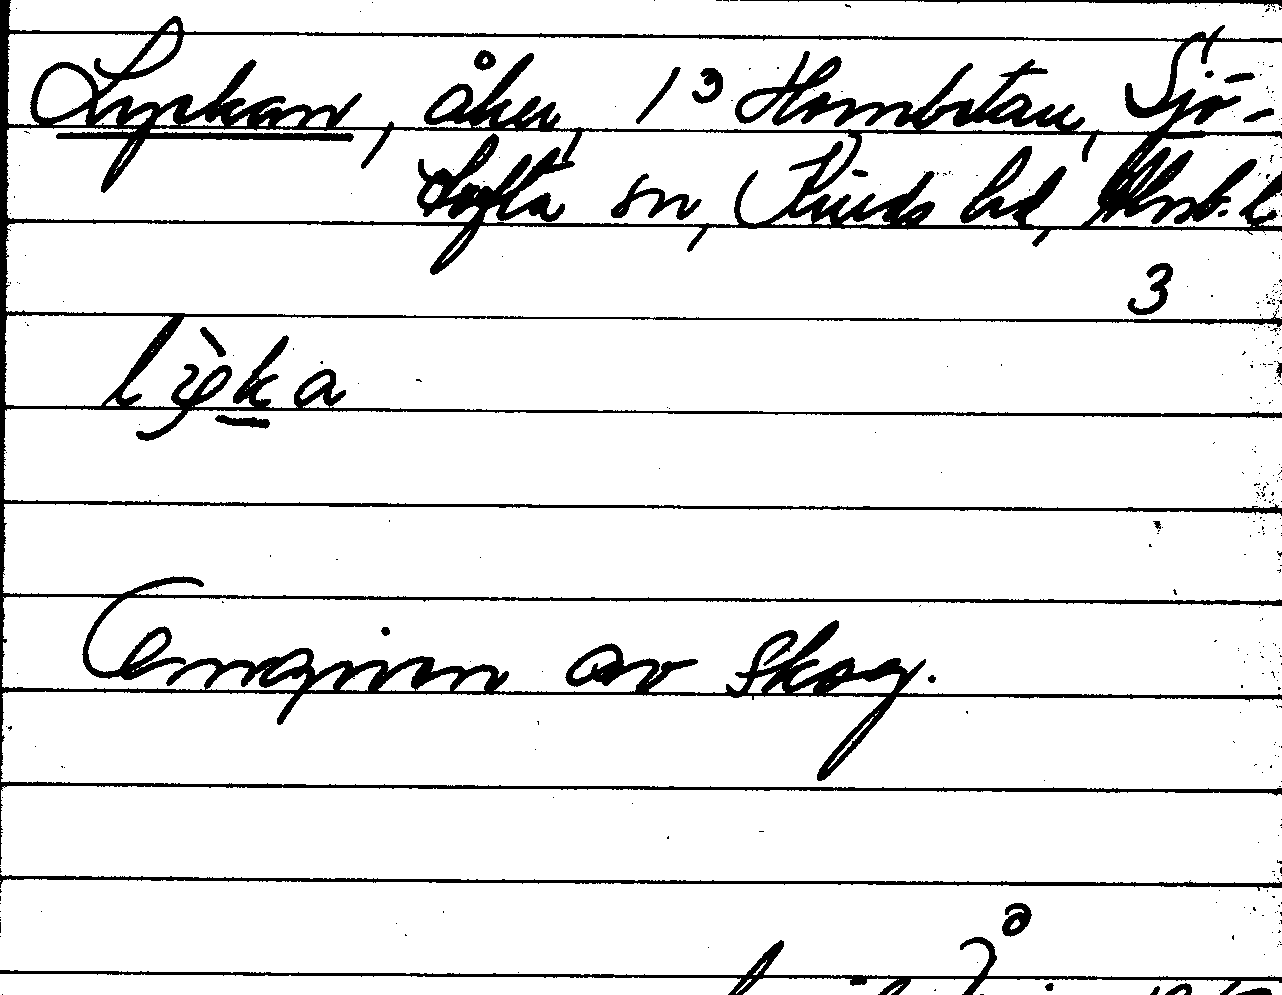 Lyckan, åker, 1³ Hornbetan, Sjö-
tofta sn, Kinds hd, Älvsb. l
3
lỳka
Omgiven av skog.